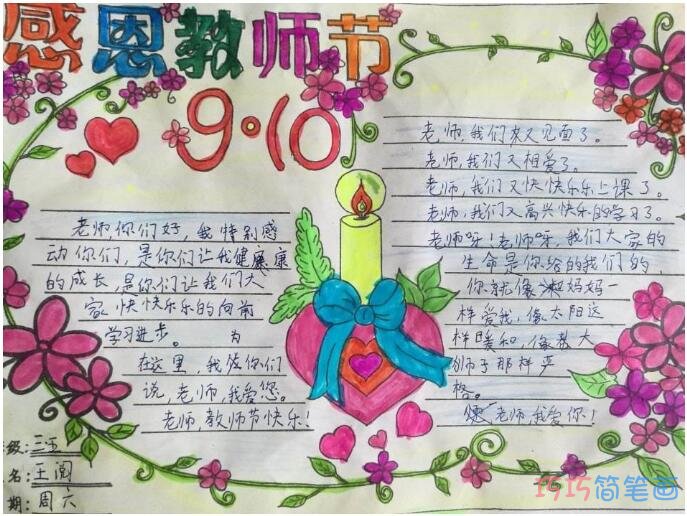 感恩教师节
9·10
老师,你们好,我特别感
动你们,是你们让我健康康
的成长,是你们让我们大
家快快乐乐的向前
学习进步。为
在这里,我
说,老师,我爱您。
老师,教师节快乐!
老师,我们又见面了。
老师,我们又相爱了。
老师,我们又快快乐乐上课了。
老师,我们又高兴快乐的学习了。
老师呀!老师呀,我们大家的
生命是你给的我们的,
你就像妈妈一
样爱我,像太阳这
样暖和,像大
狮子那样严
格。
老师,我爱你!
级:三五
名:王阅
期:周六
1515简笔画